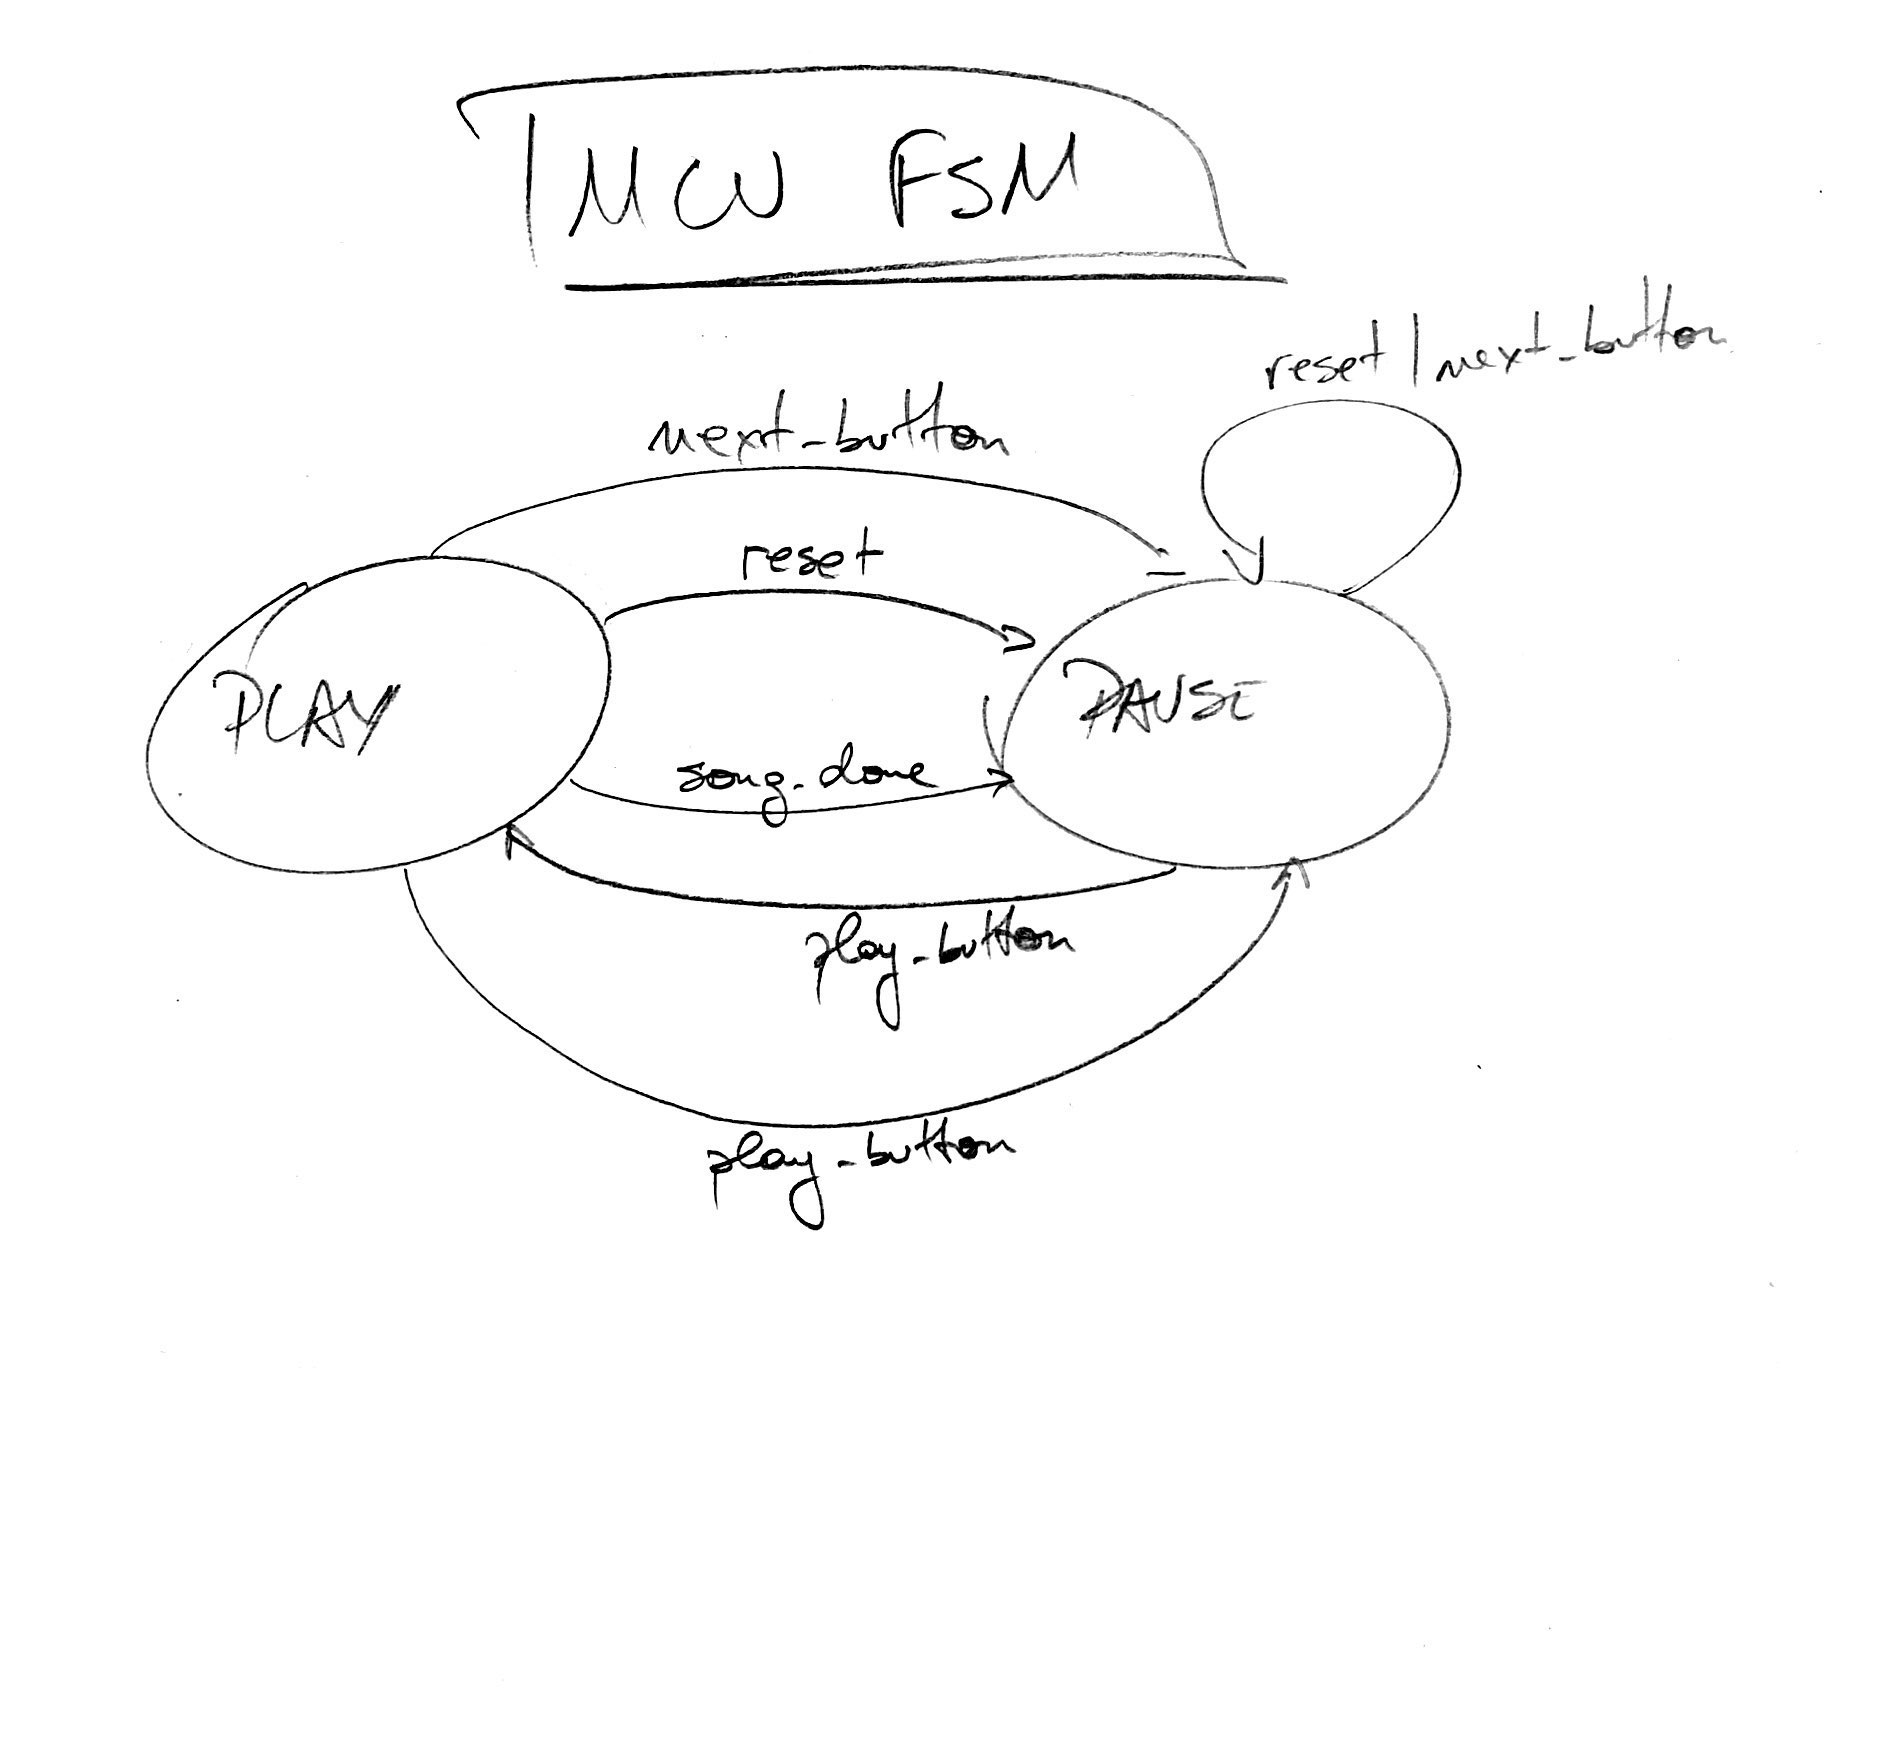 MCU FSM
reset | next_button
next_button
reset
PLAY
PAUSE
song_done
play_button
play_button